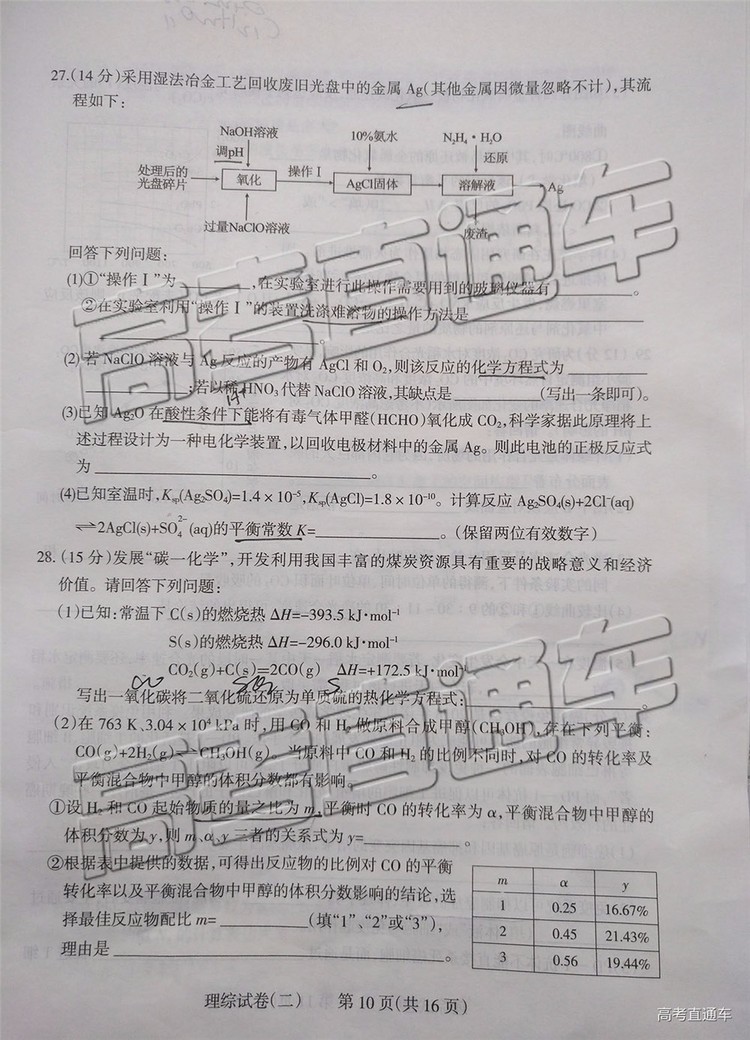 27.(14 分)采用湿法冶金工艺回收废旧光盘中的金属 Ag(其他金属因微量忽略不计),其流
程如下:
NaOH溶液 10%氨水 N₂H₄·H₂O
调pH 还原
处理后的 操作Ⅰ
光盘碎片 氧化 AgCl固体 溶解液 Ag
过量NaClO溶液 废渣
回答下列问题:
(1)①“操作Ⅰ”为________,在实验室进行此操作需要用到的玻璃仪器有________。
②在实验室利用“操作Ⅰ”的装置洗涤难溶物的操作方法是________
________。
(2)若 NaClO 溶液与 Ag 反应的产物有 AgCl 和 O₂,则该反应的化学方程式为________
________;若以稀 HNO₃ 代替 NaClO 溶液,其缺点是________(写出一条即可)。
(3)已知 Ag₂O 在酸性条件下能将有毒气体甲醛(HCHO)氧化成 CO₂,科学家据此原理将上
述过程设计为一种电化学装置,以回收电极材料中的金属 Ag。则此电池的正极反应式
为________。
(4)已知室温时,Ksp(Ag₂SO₄)=1.4×10⁻⁵,Ksp(AgCl)=1.8×10⁻¹⁰。计算反应 Ag₂SO₄(s)+2Cl⁻(aq)
⇌2AgCl(s)+SO₄²⁻(aq)的平衡常数 K=________。(保留两位有效数字)
28.(15 分)发展“碳一化学”,开发利用我国丰富的煤炭资源具有重要的战略意义和经济
价值。请回答下列问题:
(1)已知:常温下 C(s)的燃烧热 ΔH=-393.5 kJ·mol⁻¹
S(s)的燃烧热 ΔH=-296.0 kJ·mol⁻¹
CO₂(g)+C(s)=2CO(g) ΔH=+172.5 kJ·mol⁻¹
CO SO₂ S
写出一氧化碳将二氧化硫还原为单质硫的热化学方程式:________。
(2)在 763 K、3.04×10⁴ kPa 时,用 CO 和 H₂ 做原料合成甲醇(CH₃OH),存在下列平衡:
CO(g)+2H₂(g)⇌CH₃OH(g)。当原料中 CO 和 H₂ 的比例不同时,对 CO 的转化率及
平衡混合物中甲醇的体积分数都有影响。
①设 H₂ 和 CO 起始物质的量之比为 m,平衡时 CO 的转化率为 α,平衡混合物中甲醇的
体积分数为 y,则 m、α、y 三者的关系式为 y=________。
②根据表中提供的数据,可得出反应物的比例对 CO 的平衡
转化率以及平衡混合物中甲醇的体积分数影响的结论,选
择最佳反应物配比 m=________(填“1”、“2”或“3”),
理由是________。
m α y
1 0.25 16.67%
2 0.45 21.43%
3 0.56 19.44%
理综试卷(二) 第 10 页(共 16 页)
高考直通车
高考直通车
高考直通车